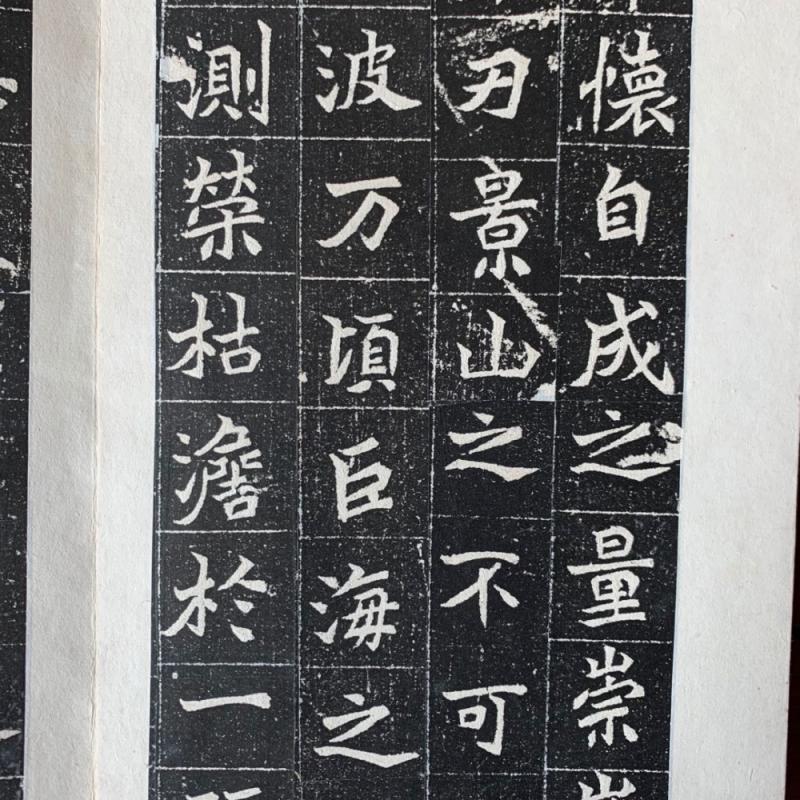 懐自成之量崇
刃景山之不可
波万頃巨海之
測榮枯澹於一